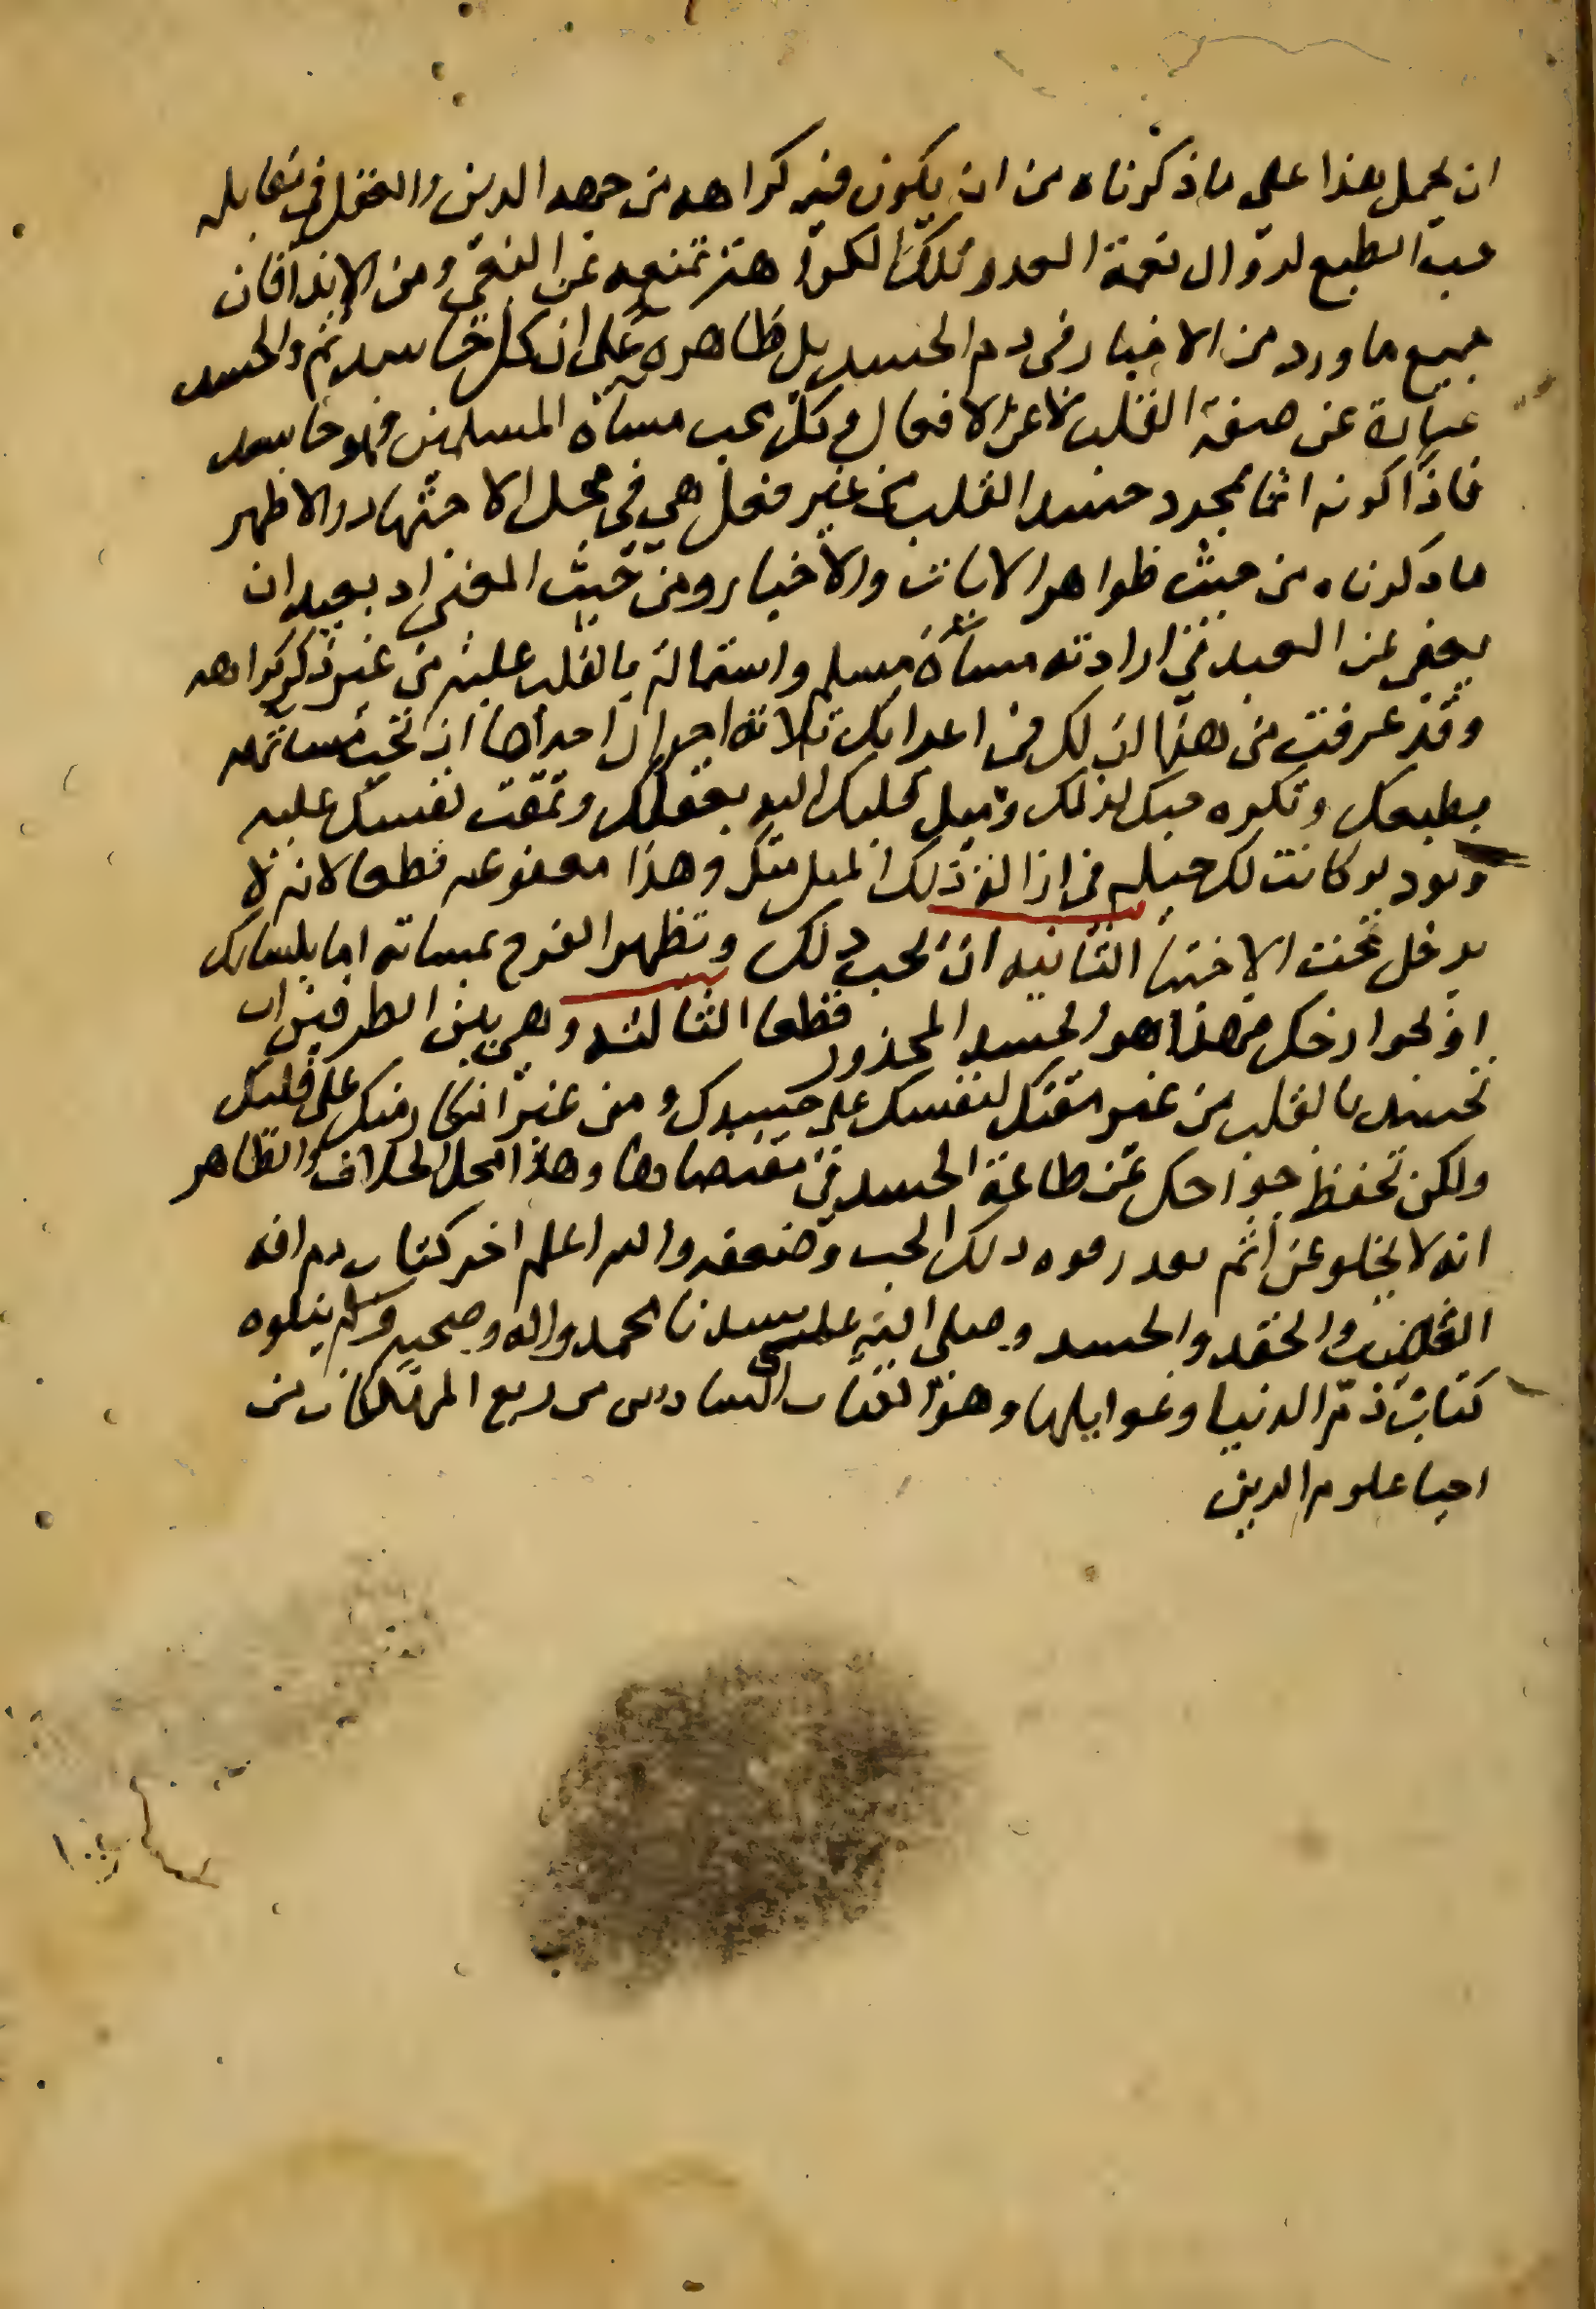 ان يحمل هذا على ما ذكرناه من ان يكون فيه كراهه من جهه الدين والعقل في مقابله
حب الطبع لزوال نعمة العدو وتلك الكراهة تمنعه عن البغي ومن الايذا فان
جميع ما ورد من الاخبار في ذم الحسد يدل ظاهره على ان كل حاسد اثم والحسد
عبارة عن صفة القلب لا عن الافعال وكل محب مساة المسلمين فهو حاسد
فاذا كونه اثما بمجرد حسد القلب من غير فعل هي في محل الاجتهاد والاظهر
ما ذكرناه من حيث ظواهر الايات والاخبار ومن حيث المعنى اذ بعيد ان
يعفى عن العبد في ارادته مساة مسلم واشتماله بالقلب عليه من غير ذكر كراهه
وقد عرفت من هذا ان لك في اعدايك ثلاثة احوال احداها ان تحب مساتهم
بطبعك وتكره حبك لذلك وميل قلبك اليه بعقلك وتمقت نفسك عليه
وتود لو كانت لك حيله في ازالة ذلك الميل منك وهذا معفو عنه قطعا لانه لا
يدخل تحت الاختيار الثانيه ان تحب ذلك وتظهر الفرح بمساته اما بلسانك
او بجوارحك فهذا هو الحسد المحذور قطعا الثالثه وهي بين الطرفين ان
تحسد بالقلب من غير مقتك لنفسك على حسدك ومن غير انكار منك على قلبك
ولكن تحفظ جوارحك عن طاعة الحسد في مقتضاها وهذا محل الخلاف والظاهر
انه لا يخلو عن اثم بقدر قوه ذلك الحب وضعفه والله اعلم اخر كتاب ذم افه
الغضب والحقد والحسد وصلى الله على سيدنا محمد واله وصحبه وسلم يتلوه
كتاب ذم الدنيا وغوايلها وهو الكتاب السادس من ربع المهلكات من
احيا علوم الدين